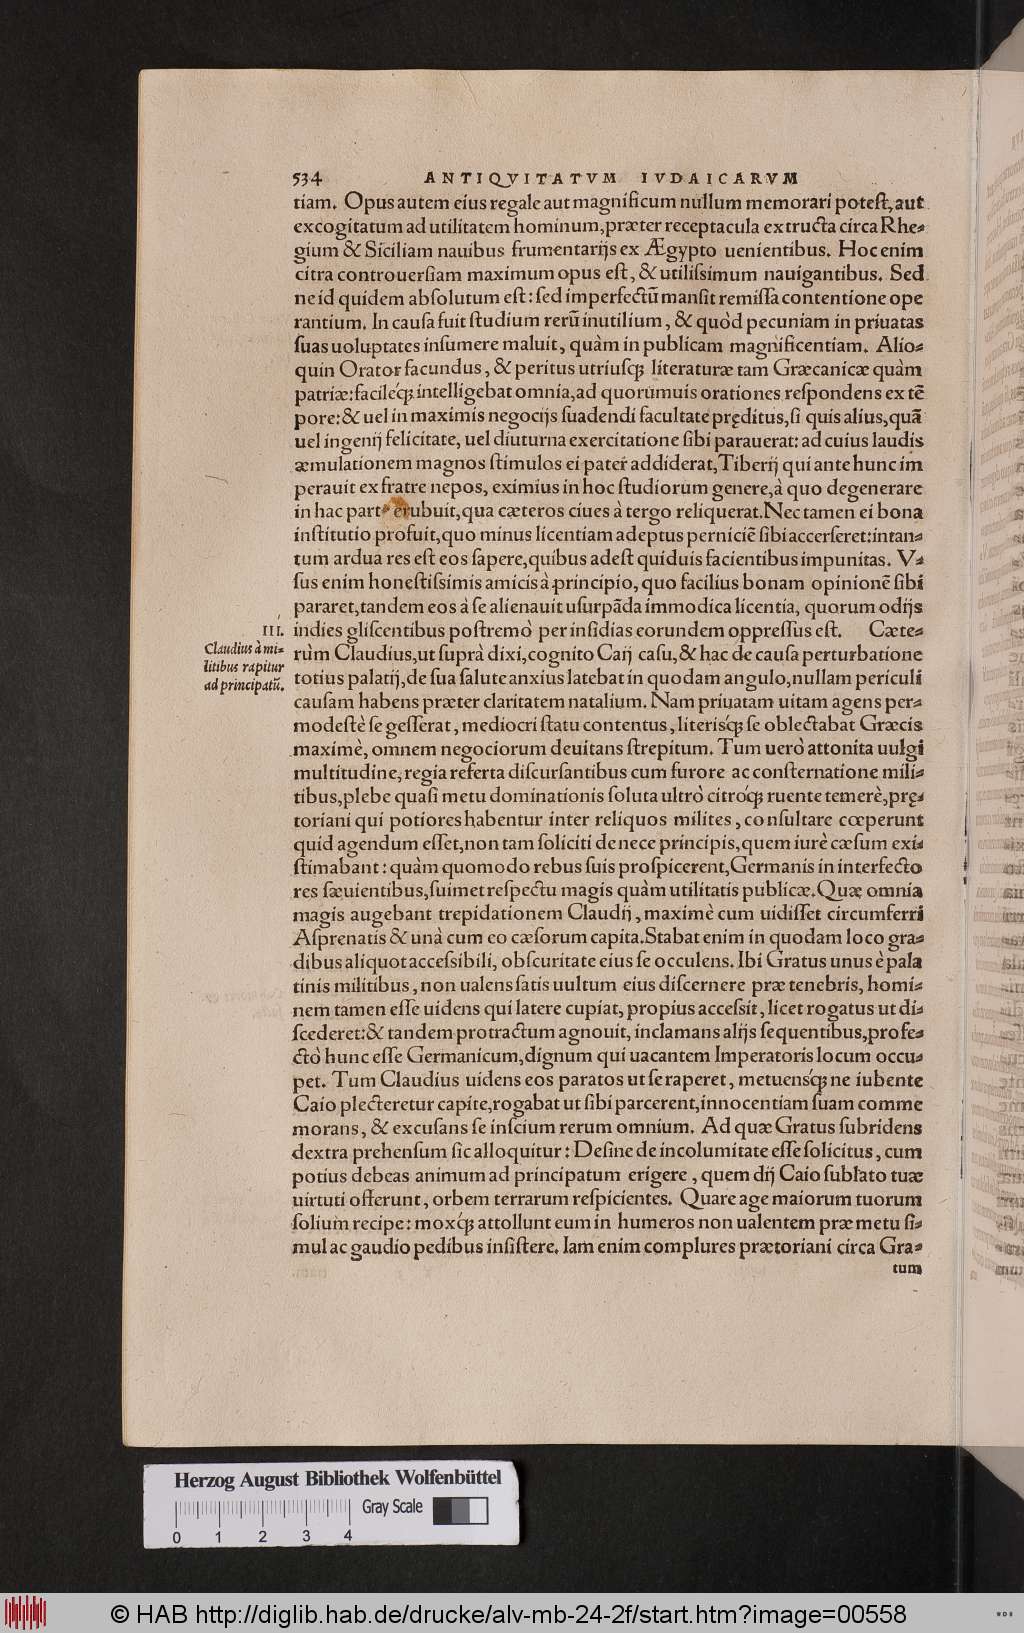 534 ANTIQVITATVM IVDAICARVM
tiam. Opus autem eius regale aut magnificum nullum memorari poteſt, aut
excogitatum ad utilitatem hominum, præter receptacula extructa circa Rhe-
gium & Siciliam nauibus frumentarijs ex Ægypto uenientibus. Hoc enim
citra controuerſiam maximum opus eſt, & utiliſsimum nauigantibus. Sed
ne id quidem abſolutum eſt: ſed imperfectũ manſit remiſſa contentione ope
rantium. In cauſa fuit ſtudium rerũ inutilium, & quòd pecuniam in priuatas
ſuas uoluptates inſumere maluit, quàm in publicam magnificentiam. Alio-
quin Orator facundus, & peritus utriuſq́; literaturæ tam Græcanicæ quàm
patriæ: facileq́; intelligebat omnia, ad quorumuis orationes reſpondens ex tẽ
pore: & uel in maximis negocijs ſuadendi facultate pręditus, ſi quis alius, quã
uel ingenij felicitate, uel diuturna exercitatione ſibi parauerat: ad cuius laudis
æmulationem magnos ſtimulos ei pater addiderat, Tiberij qui ante hunc im
perauit ex fratre nepos, eximius in hoc ſtudiorum genere, à quo degenerare
in hac part erubuit, qua cæteros ciues à tergo reliquerat. Nec tamen ei bona
inſtitutio profuit, quo minus licentiam adeptus perniciẽ ſibi accerſeret: in tan-
tum ardua res eſt eos ſapere, quibus adeſt quiduis facientibus impunitas. V-
ſus enim honeſtiſsimis amicis à principio, quo facilius bonam opinionẽ ſibi
pararet, tandem eos à ſe alienauit uſurpãda immodica licentia, quorum odijs
III. indies gliſcentibus poſtremò per inſidias eorundem oppreſſus eſt. Cæte-
Claudius à mi-
litibus rapitur
ad principatũ.
rùm Claudius, ut ſuprà dixi, cognito Caij caſu, & hac de cauſa perturbatione
totius palatij, de ſua ſalute anxius latebat in quodam angulo, nullam periculi
cauſam habens præter claritatem natalium. Nam priuatam uitam agens per-
modeſtè ſe geſſerat, mediocri ſtatu contentus, literisq́; ſe oblectabat Græcis
maximè, omnem negociorum deuitans ſtrepitum. Tum uerò attonita uulgi
multitudine, regia referta diſcurſantibus cum furore ac conſternatione mili-
tibus, plebe quaſi metu dominationis ſoluta ultrò citroq́; ruente temerè, prę-
toriani qui potiores habentur inter reliquos milites, conſultare cœperunt
quid agendum eſſet, non tam ſoliciti de nece principis, quem iurè cæſum exi-
ſtimabant: quàm quomodo rebus ſuis proſpicerent, Germanis in interfecto
res ſæuientibus, ſuimet reſpectu magis quàm utilitatis publicæ. Quæ omnia
magis augebant trepidationem Claudij, maximè cum uidiſſet circumferri
Aſprenatis & unà cum eo cæſorum capita. Stabat enim in quodam loco gra-
dibus aliquot acceſsibili, obſcuritate eius ſe occulens. Ibi Gratus unus è pala
tinis militibus, non ualens ſatis uultum eius diſcernere præ tenebris, homi-
nem tamen eſſe uidens qui latere cupiat, propius acceſsit, licet rogatus ut di-
ſcederet: & tandem protractum agnouit, inclamans alijs ſequentibus, profe-
ctò hunc eſſe Germanicum, dignum qui uacantem Imperatoris locum occu-
pet. Tum Claudius uidens eos paratos ut ſe raperet, metuensq́; ne iubente
Caio plecteretur capite, rogabat ut ſibi parcerent, innocentiam ſuam comme
morans, & excuſans ſe inſcium rerum omnium. Ad quæ Gratus ſubridens
dextra prehenſum ſic alloquitur: Deſine de incolumitate eſſe ſolicitus, cum
potius debeas animum ad principatum erigere, quem dij Caio ſublato tuæ
uirtuti offerunt, orbem terrarum reſpicientes. Quare age maiorum tuorum
ſolium recipe: moxq́; attollunt eum in humeros non ualentem præ metu ſi-
mul ac gaudio pedibus inſiſtere. Iam enim complures prætoriani circa Gra-
tum
Herzog August Bibliothek Wolfenbüttel
Gray Scale
0 1 2 3 4
© HAB http://diglib.hab.de/drucke/alv-mb-24-2f/start.htm?image=00558